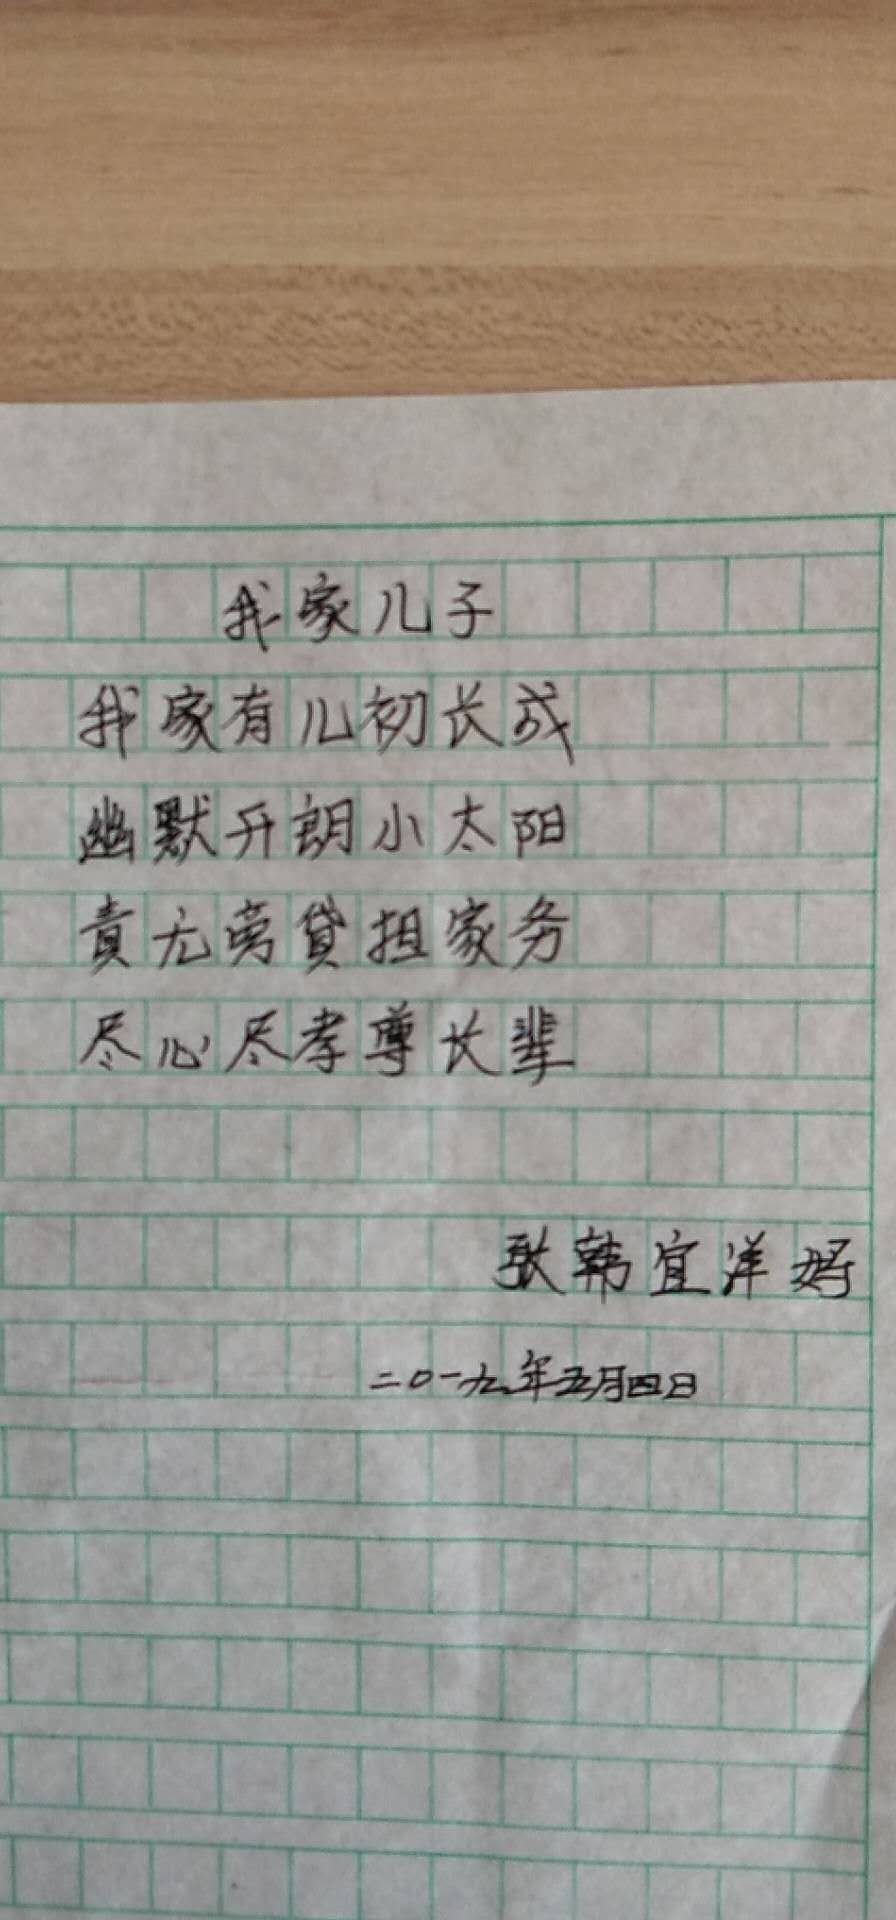 我家儿子
我家有儿初长成
幽默开朗小太阳
责无旁贷担家务
尽心尽孝尊长辈
张韩宜洋妈
二〇一九年五月四日